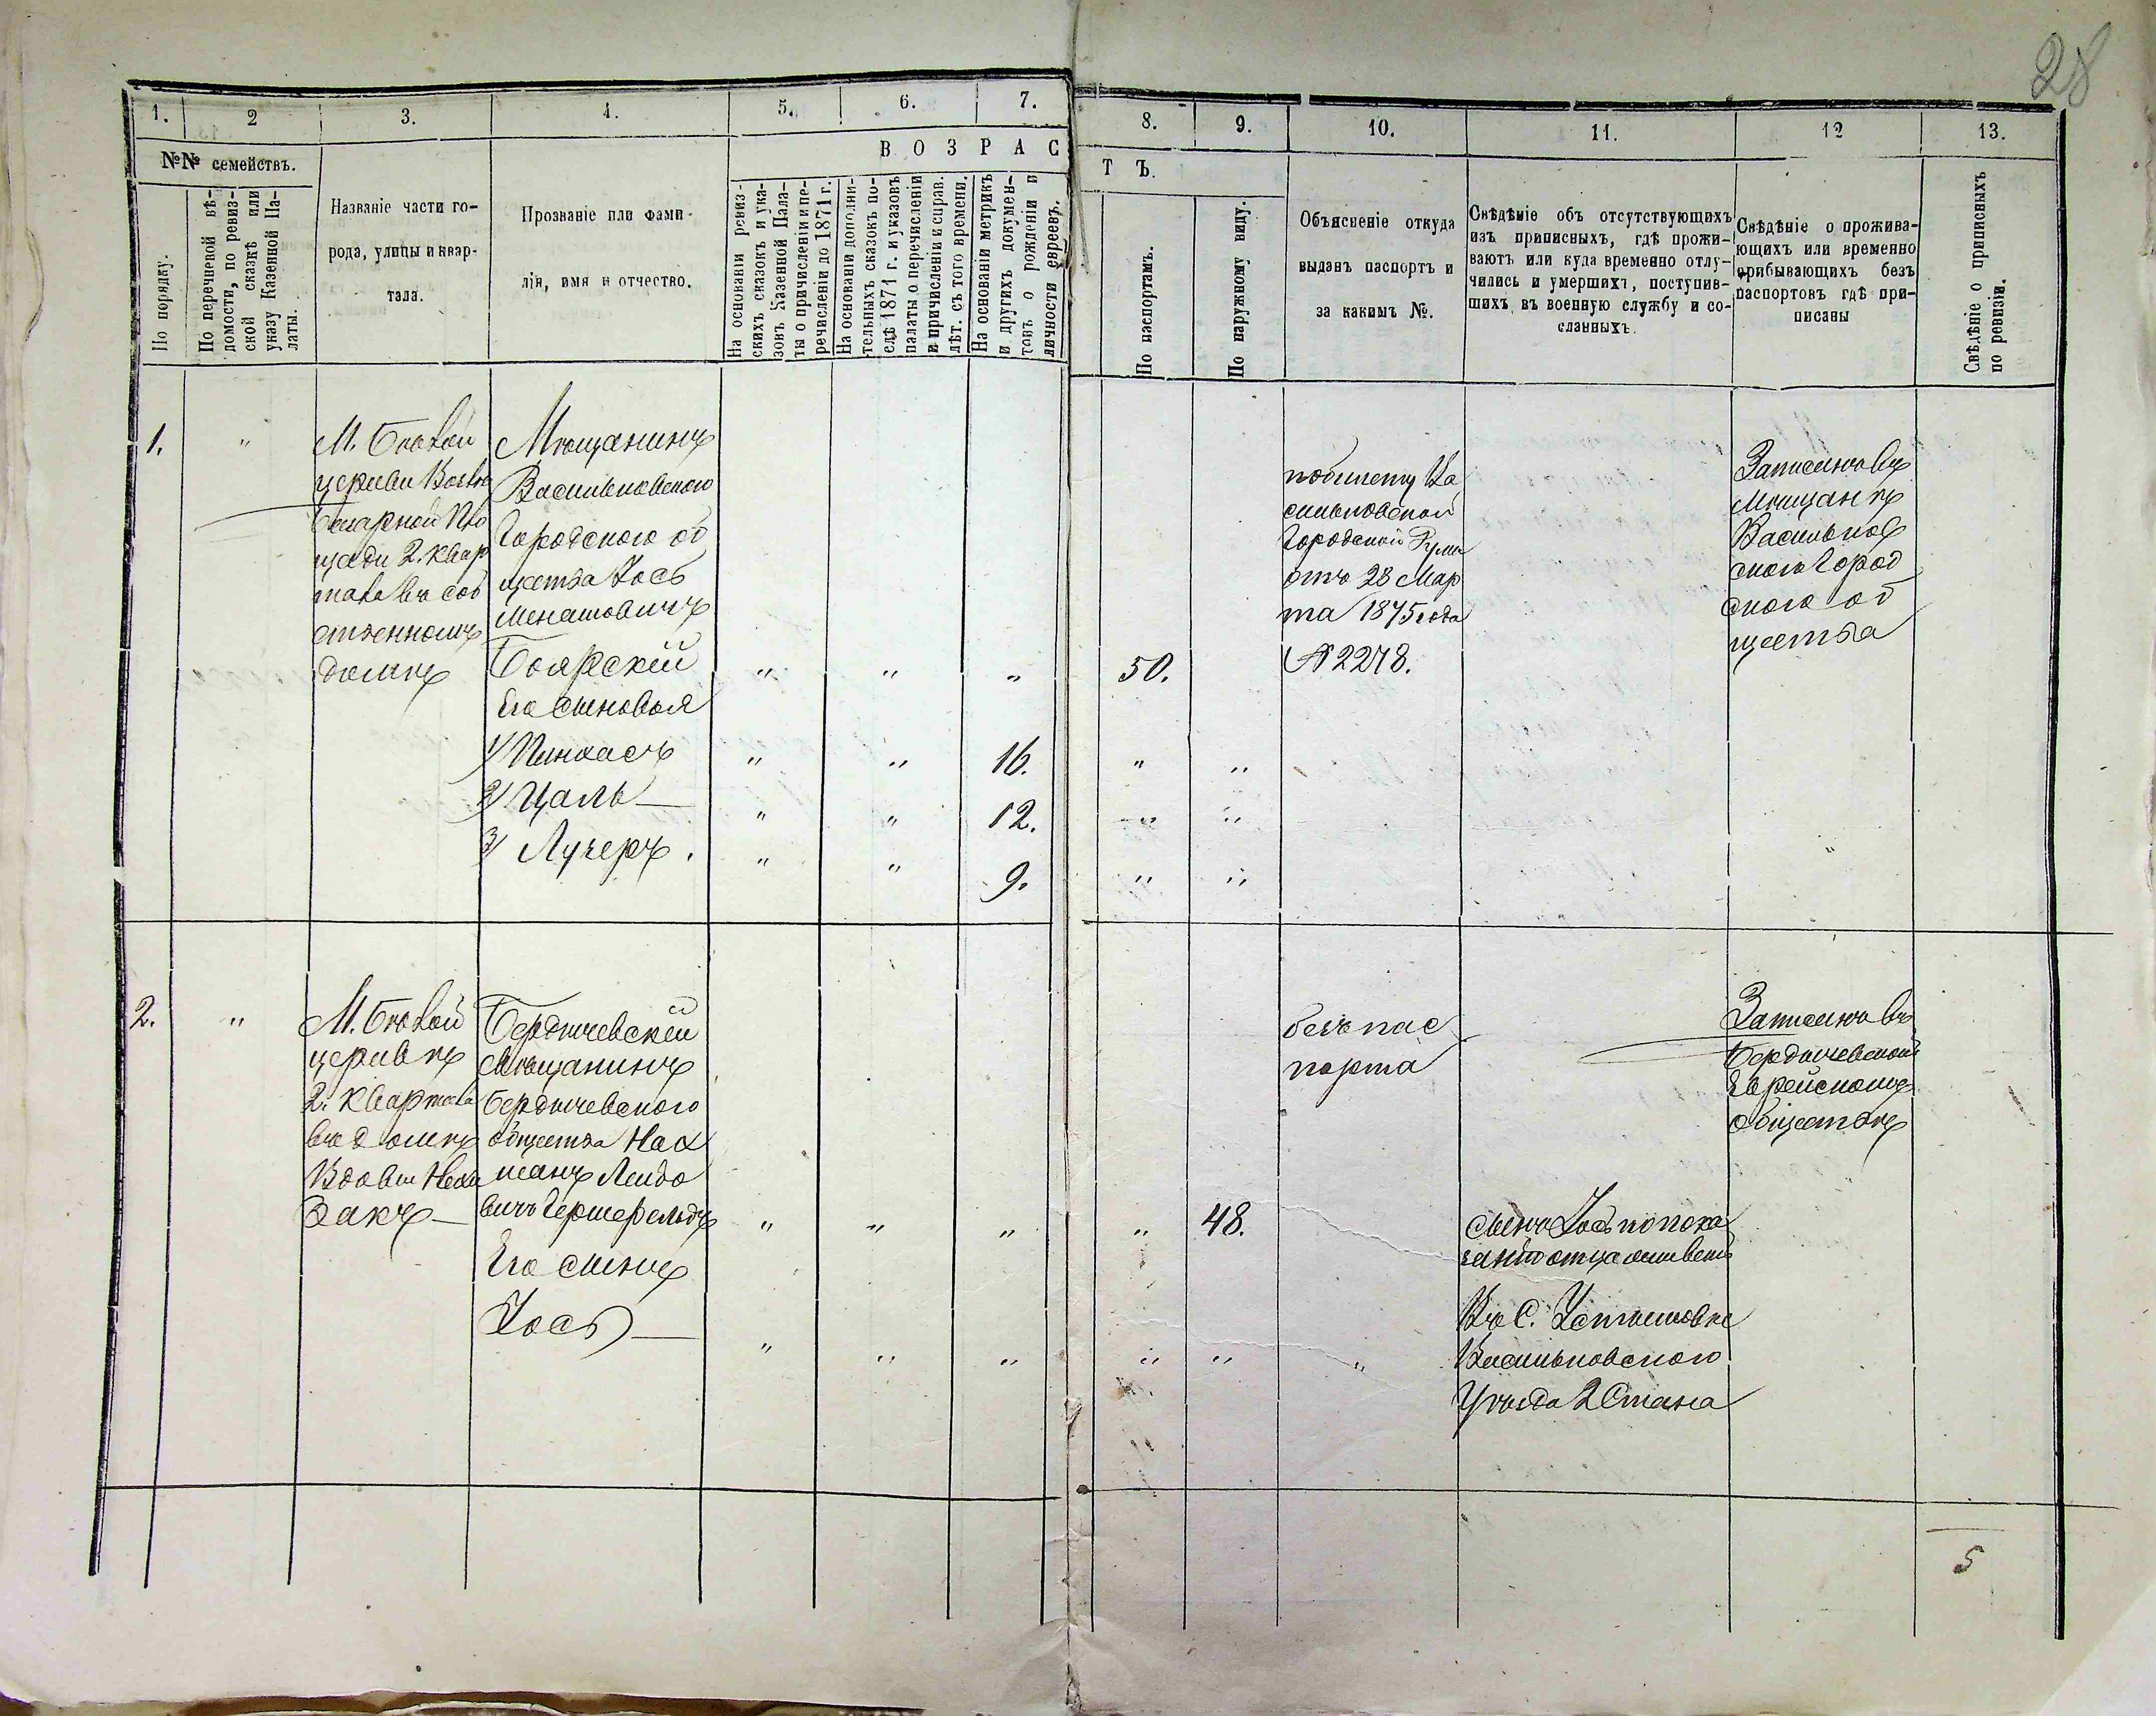 28
1.
2
3.
4.
5.
6.
7.
8.
9.
10.
11.
12
13.
№№ семействъ.
ВОЗРАСТЪ.
По порядку.
По перечневой вѣ-
домости, по ревиз-
ской сказкѣ или
указу Казенной Па-
латы.
Названіе части го-
рода, улицы и квар-
тала.
Прозваніе или фами-
лія, имя и отчество.
На основаніи ревиз-
скихъ сказокъ и ука-
зовъ Казенной Пала-
ты о причисленіи и пе-
речисленіи до 1871 г.
На основаніи дополни-
тельныхъ сказокъ по-
слѣ 1871 г. и указовъ
палаты о перечисленіи
и причисленіи и справ.
лѣт. съ того времени.
На основаніи метрикъ
и другихъ докумен-
товъ о рожденіи и
личности евреевъ.
По паспортамъ.
По наружному виду.
Объясненіе откуда
выданъ паспортъ и
за какимъ №.
Свѣдѣніе объ отсутствующихъ
изъ приписныхъ, гдѣ прожи-
ваютъ или куда временно отлу-
чились и умершихъ, поступив-
шихъ въ военную службу и со-
сланныхъ.
Свѣдѣніе о прожива-
ющихъ или временно
прибывающихъ безъ
паспортовъ гдѣ при-
писаны
Свѣдѣніе о приписныхъ
по ревизіи.
1.
"
М. Бѣлой
церкви
базарной пло
щади 2. квар
тала въ соб
ственномъ
домѣ
Мѣщанинъ
Васильковскаго
Городского об
щества Іось
Менашовичъ
Боярскій
Его сыновья
1/ Пинхасъ
2/ Цаль
3/ Лузеръ.
" " "
" " 16.
" " 12.
" " 9.
50.
" "
" "
" "
побилету Ва
сильковской
Городской Думы
отъ 28 Мар
та 1875 года
№ 2278.
Записанъ въ
мѣщане
Васильков
ского Город
ского об
щества
2.
"
М. Бѣлой
церквѣ
2. квартала
въ домѣ
Вдовы
Закъ
Бердичевскій
мѣщанинъ
Бердичевского
общества Нах
манъ Лейбо
вичъ Гершфельдъ
Его сынъ
Іось
" " "
" " "
" 48.
" " "
безъ пас
порта
сынъ Іось по пока
занію отца живетъ
Въ С. Устимовке
Васильковского
Уѣзда 2 Стана
Записанъ въ
Бердичевскомъ
Еврейскомъ
обществѣ
5